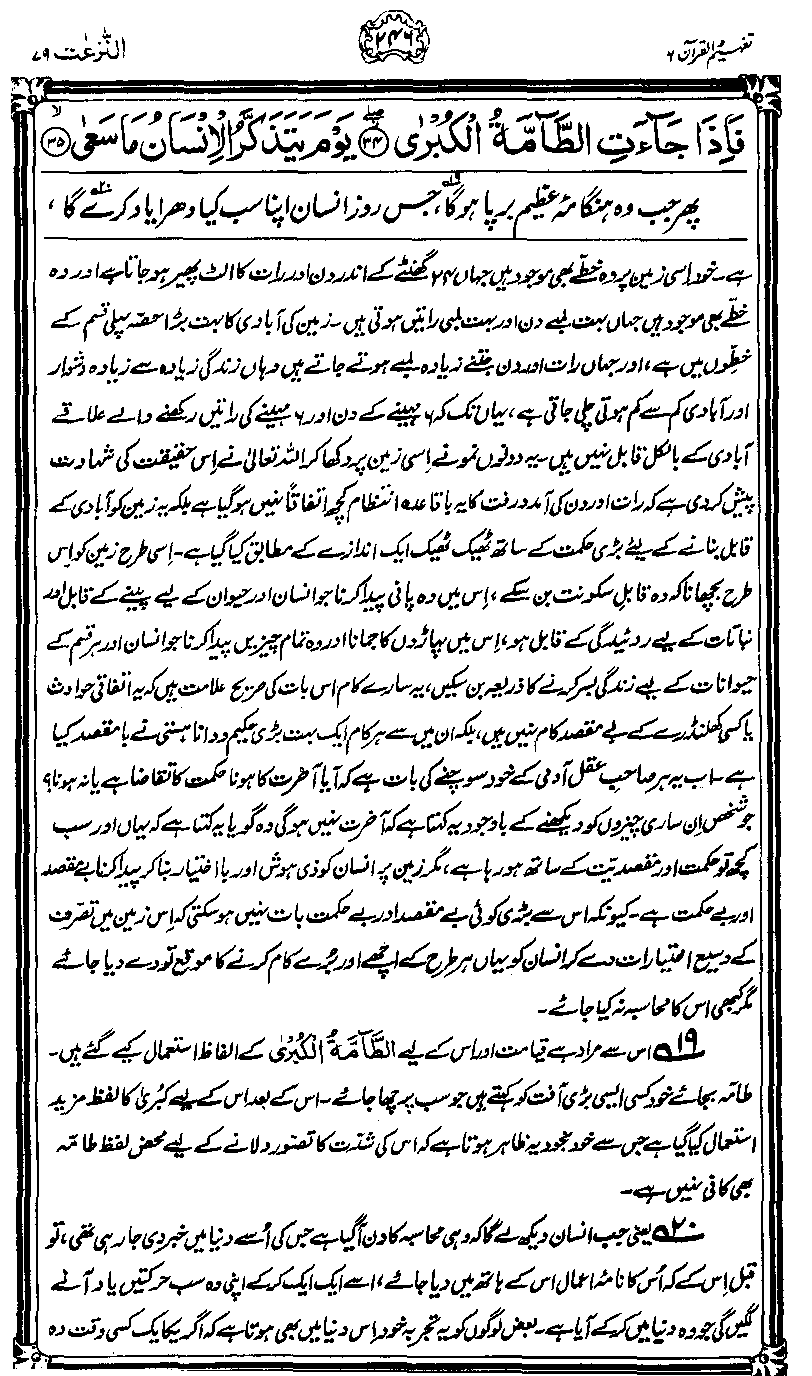 تفہیم القرآن ۶
۲۴۶
النّٰزعٰت ۷۹
فَاِذَا جَآءَتِ الطَّآمَّةُ الْكُبْرٰى ﴿۳۴﴾ يَوْمَ يَتَذَكَّرُ الْاِنْسَانُ مَا سَعٰى ﴿۳۵﴾
پھر جب وہ ہنگامۂ عظیم برپا ہوگا۱۹، جس روز انسان اپنا سب کیا دھرا یاد کرے گا۲۰،
ہے۔ خود اسی زمین پر وہ خطے بھی موجود ہیں جہاں ۲۴ گھنٹے کے اندر دن اور رات کا الٹ پھیر ہو جاتا ہے اور وہ
خطّے بھی موجود ہیں جہاں بہت لمبے دن اور بہت لمبی راتیں ہوتی ہیں۔ زمین کی آبادی کا بہت بڑا حصّہ پہلی قسم کے
خطّوں میں ہے، اور جہاں رات اور دن جتنے زیادہ لمبے ہوتے جاتے ہیں وہاں زندگی زیادہ سے زیادہ دشوار
اور آبادی کم سے کم ہوتی چلی جاتی ہے، یہاں تک کہ ۶ مہینے کے دن اور ۶ مہینے کی راتیں رکھنے والے علاقے
آبادی کے بالکل قابل نہیں ہیں۔ یہ دونوں نمونے اِسی زمین پر دکھا کر اللہ تعالیٰ نے اِس حقیقت کی شہادت
پیش کر دی ہے کہ رات اور دن کی آمد و رفت کا یہ باقاعدہ انتظام کچھ اتفاقاً نہیں ہو گیا ہے بلکہ یہ زمین کو آبادی کے
قابل بنانے کے لیئے بڑی حکمت کے ساتھ ٹھیک ٹھیک ایک اندازے کے مطابق کیا گیا ہے۔ اِسی طرح زمین کو اِس
طرح بچھانا کہ وہ قابلِ سکونت بن سکے، اِس میں وہ پانی پیدا کرنا جو انسان اور حیوان کے لیے پینے کے قابل اور
نباتات کے لیے روئیدگی کے قابل ہو، اِس میں پہاڑوں کا جمانا اور وہ تمام چیزیں پیدا کرنا جو انسان اور ہر قسم کے
حیوانات کے لیے زندگی بسر کرنے کا ذریعہ بن سکیں، یہ سارے کام اس بات کی صریح علامت ہیں کہ یہ اتفاقی حوادث
یا کسی کھلنڈرے کے بے مقصد کام نہیں ہیں، بلکہ ان میں سے ہر کام ایک بہت بڑی حکیم و دانا ہستی نے با مقصد کیا
ہے۔ اب یہ ہر صاحبِ عقل آدمی کے خود سوچنے کی بات ہے کہ آیا آخرت کا ہونا حکمت کا تقاضا ہے یا نہ ہونا؟
جو شخص اِن ساری چیزوں کو دیکھنے کے باوجود یہ کہتا ہے کہ آخرت نہیں ہوگی وہ گویا یہ کہتا ہے کہ یہاں اور سب
کچھ تو حکمت اور مقصدیّت کے ساتھ ہو رہا ہے، مگر زمین پر انسان کو ذی ہوش اور بااختیار بنا کر پیدا کرنا بے مقصد
اور بے حکمت ہے۔ کیونکہ اس سے بڑی کوئی بے مقصد اور بے حکمت بات نہیں ہو سکتی کہ اِس زمین میں تصرّف
کے وسیع اختیارات دے کر انسان کو یہاں ہر طرح کے اچھے اور بُرے کام کرنے کا موقع تو دے دیا جائے
مگر کبھی اس کا محاسبہ نہ کیا جائے۔
۱۹ اس سے مراد ہے قیامت اور اس کے لیے الطَّآمَّةُ الْكُبْرٰى کے الفاظ استعمال کیے گئے ہیں۔
طامّہ بجائے خود کسی ایسی بڑی آفت کو کہتے ہیں جو سب پر چھا جائے۔ اس کے بعد اس کے لیے کُبریٰ کا لفظ مزید
استعمال کیا گیا ہے جس سے خود بخود یہ ظاہر ہوتا ہے کہ اس کی شدّت کا تصوّر دلانے کے لیے محض لفظ طامّہ
بھی کافی نہیں ہے۔
۲۰ یعنی جب انسان دیکھ لے گا کہ وہی محاسبہ کا دن آگیا ہے جس کی اُسے دنیا میں خبر دی جا رہی تھی، تو
قبل اِس کے کہ اُس کا نامۂ اعمال اس کے ہاتھ میں دیا جائے، اسے ایک ایک کر کے اپنی وہ سب حرکتیں یاد آنے
لگیں گی جو وہ دنیا میں کر کے آیا ہے۔ بعض لوگوں کو یہ تجربہ خود اِس دنیا میں بھی ہوتا ہے کہ اگر یکایک کسی وقت وہ